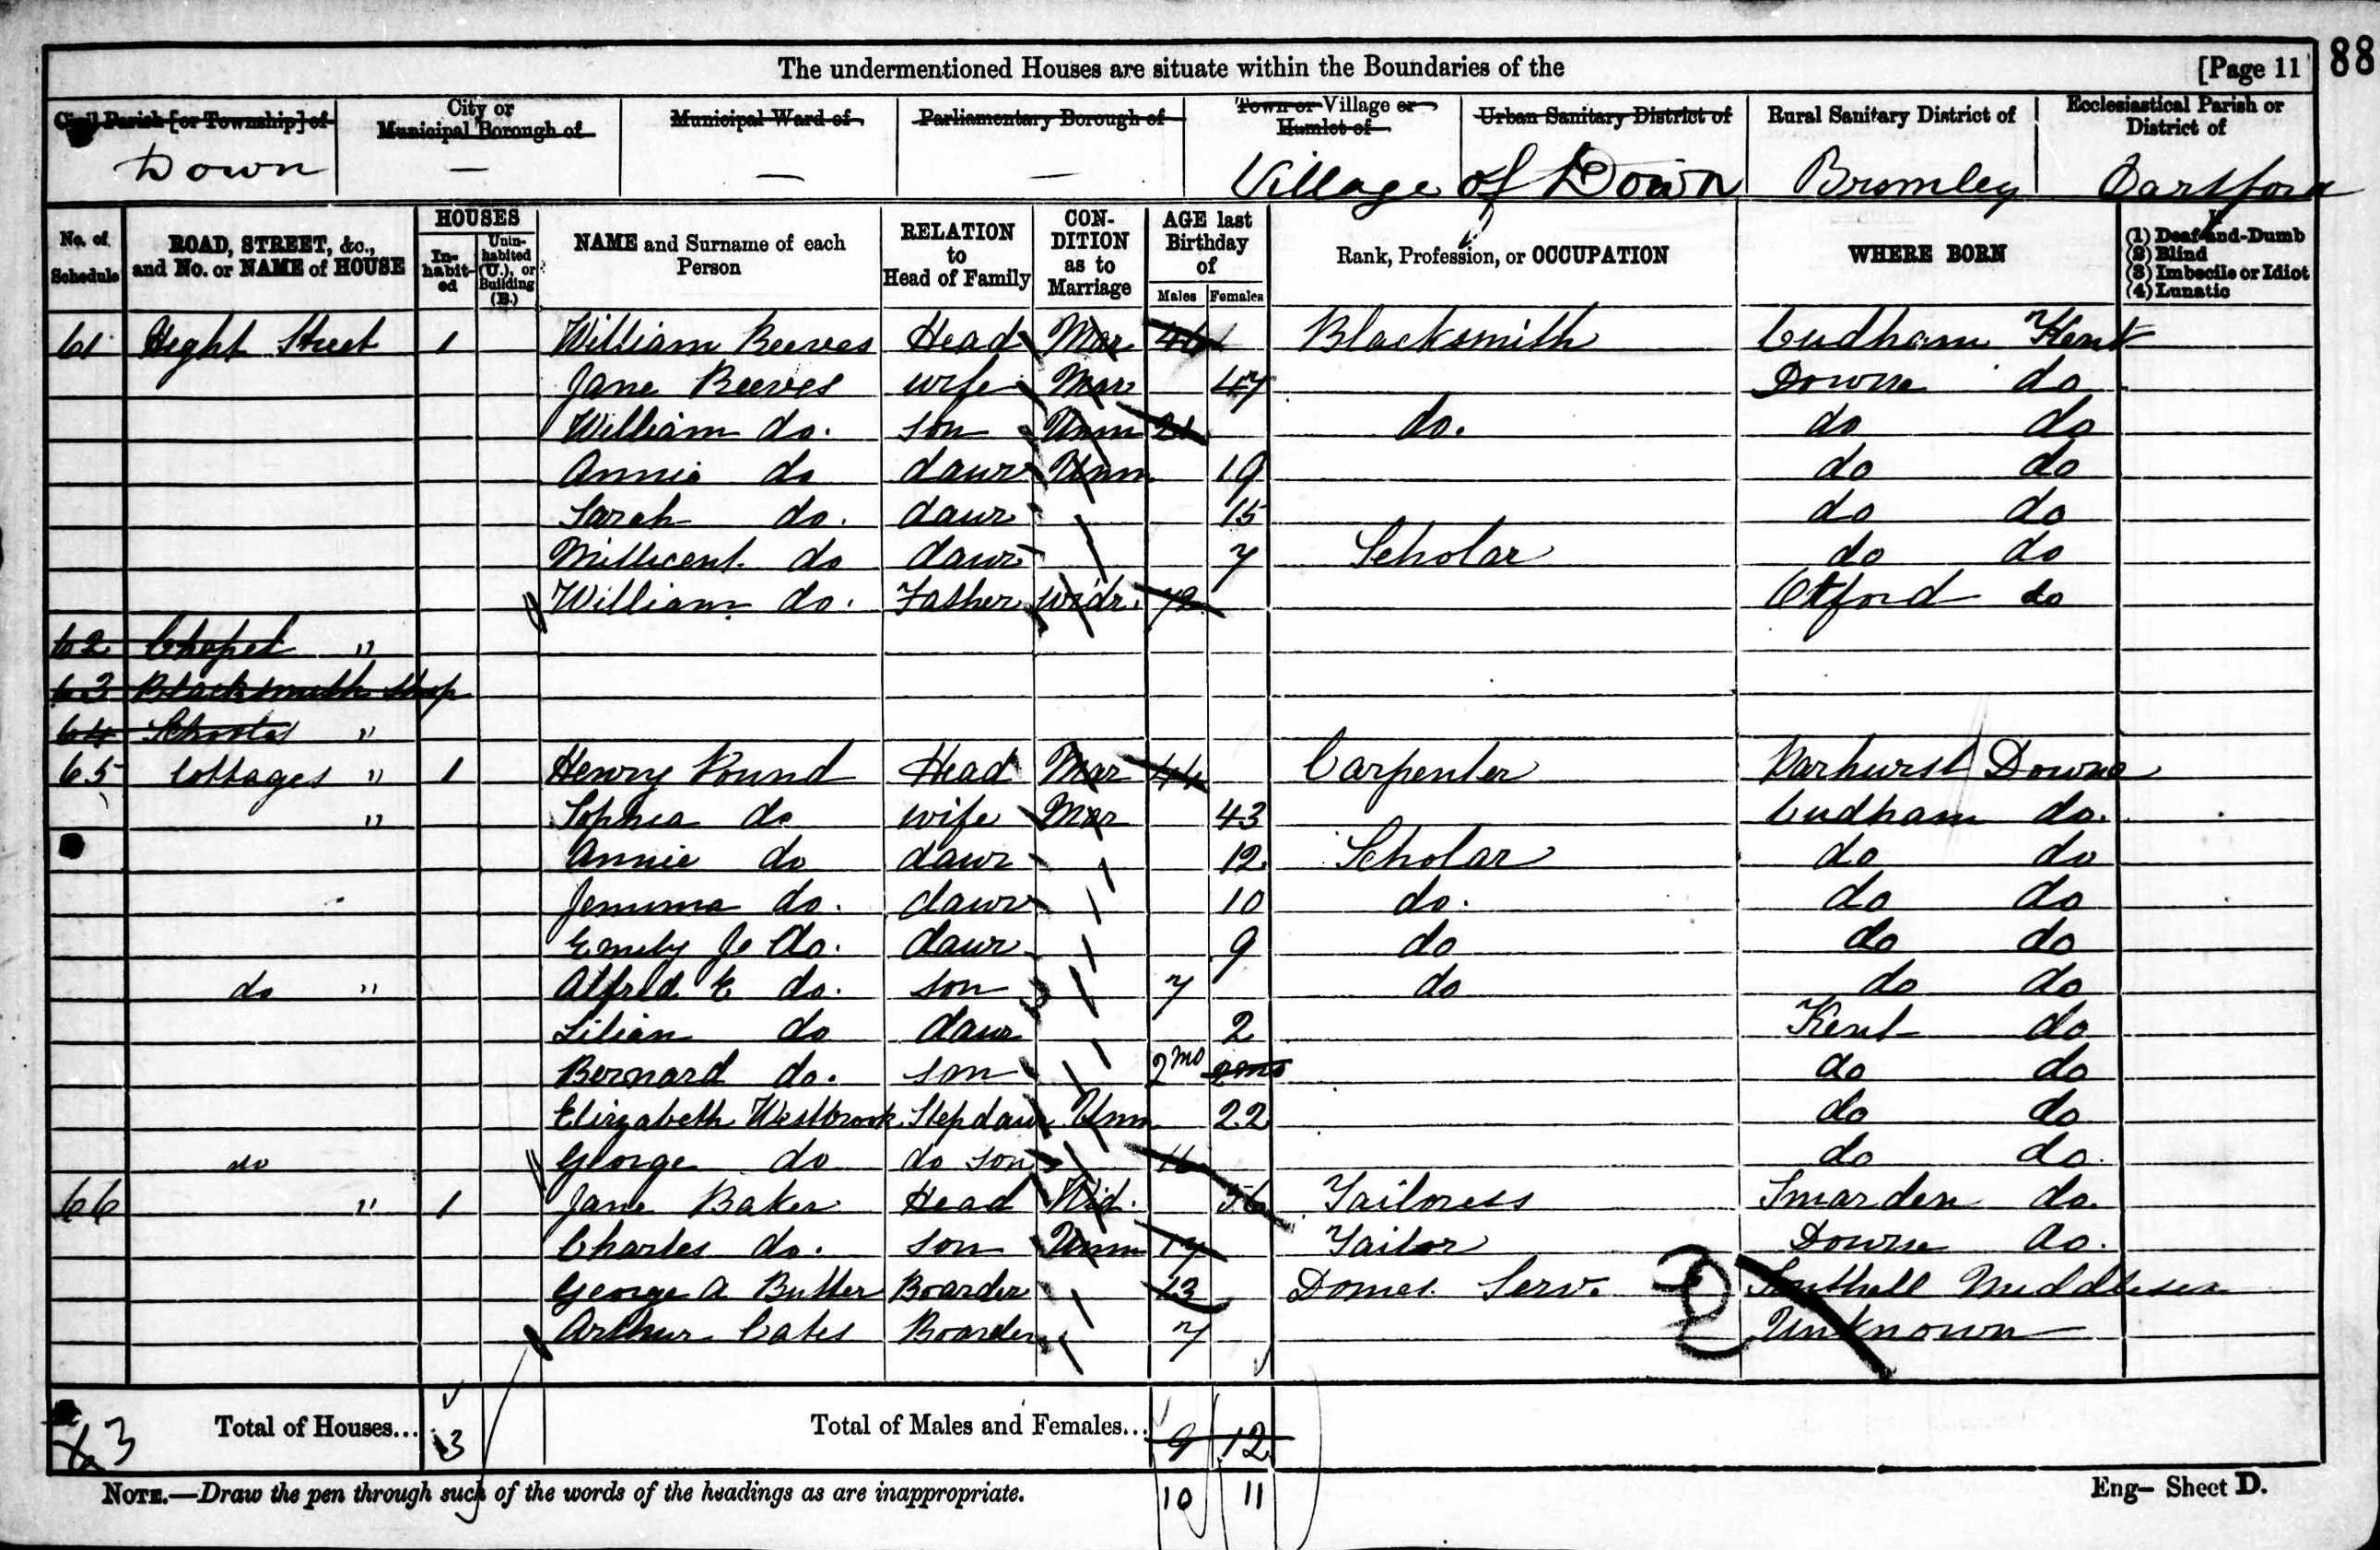 The undermentioned Houses are situate within the Boundaries of the [Page 11 88
Civil Parish [or Township] of City or Municipal Borough of Municipal Ward of Parliamentary Borough of Town or Village or Hamlet of Urban Sanitary District of Rural Sanitary District of Ecclesiastical Parish or District of
Down — — — Village of Down Bromley Dartford
No. of Schedule ROAD, STREET, &c., and No. or NAME of HOUSE HOUSES Inhabited Uninhabited (U.), or Building (B.) NAME and Surname of each Person RELATION to Head of Family CONDITION as to Marriage AGE last Birthday of Males Females Rank, Profession, or OCCUPATION WHERE BORN (1) Deaf-and-Dumb (2) Blind (3) Imbecile or Idiot (4) Lunatic
61 Hight Street 1 William Reeves Head Mar 46 Blacksmith Cudham Kent
Jane Reeves wife Mar 47 Downe do
William do. son Unm 21 do. do do
Annie do daur Unm 19 do do
Sarah do. daur 15 do do
Millicent do daur 7 Scholar do do
William do. Father Widr. 72 Otford do
62 Chapel "
63 Blacksmith Shop
64 Schools "
65 Cottages " 1 Henry Pound Head Mar 44 Carpenter Downe
" Sophia do wife Mar 43 Cudham do.
Annie do daur 12 Scholar do do
Jemima do. daur 10 do. do do
Emily J do. daur 9 do do do
do " Alfred E do. son 7 do do do
Lilian do daur 2 Kent do
Bernard do. son 2mo 2mo do do
Elizabeth Westbrook Stepdaur Unm 22 do do
do George do do son 16 do do.
66 " 1 Jane Baker Head Wid. 56 Tailoress Smarden do.
Charles do. son Unm 17 Tailor Downe do.
George A Butler Boarder 13 Domes. Serv. Southall Middlesex
Arthur Cates Boarder 7 Unknown
3 Total of Houses... 3 Total of Males and Females... 9 12
NOTE.—Draw the pen through such of the words of the headings as are inappropriate. 10 11 Eng— Sheet D.